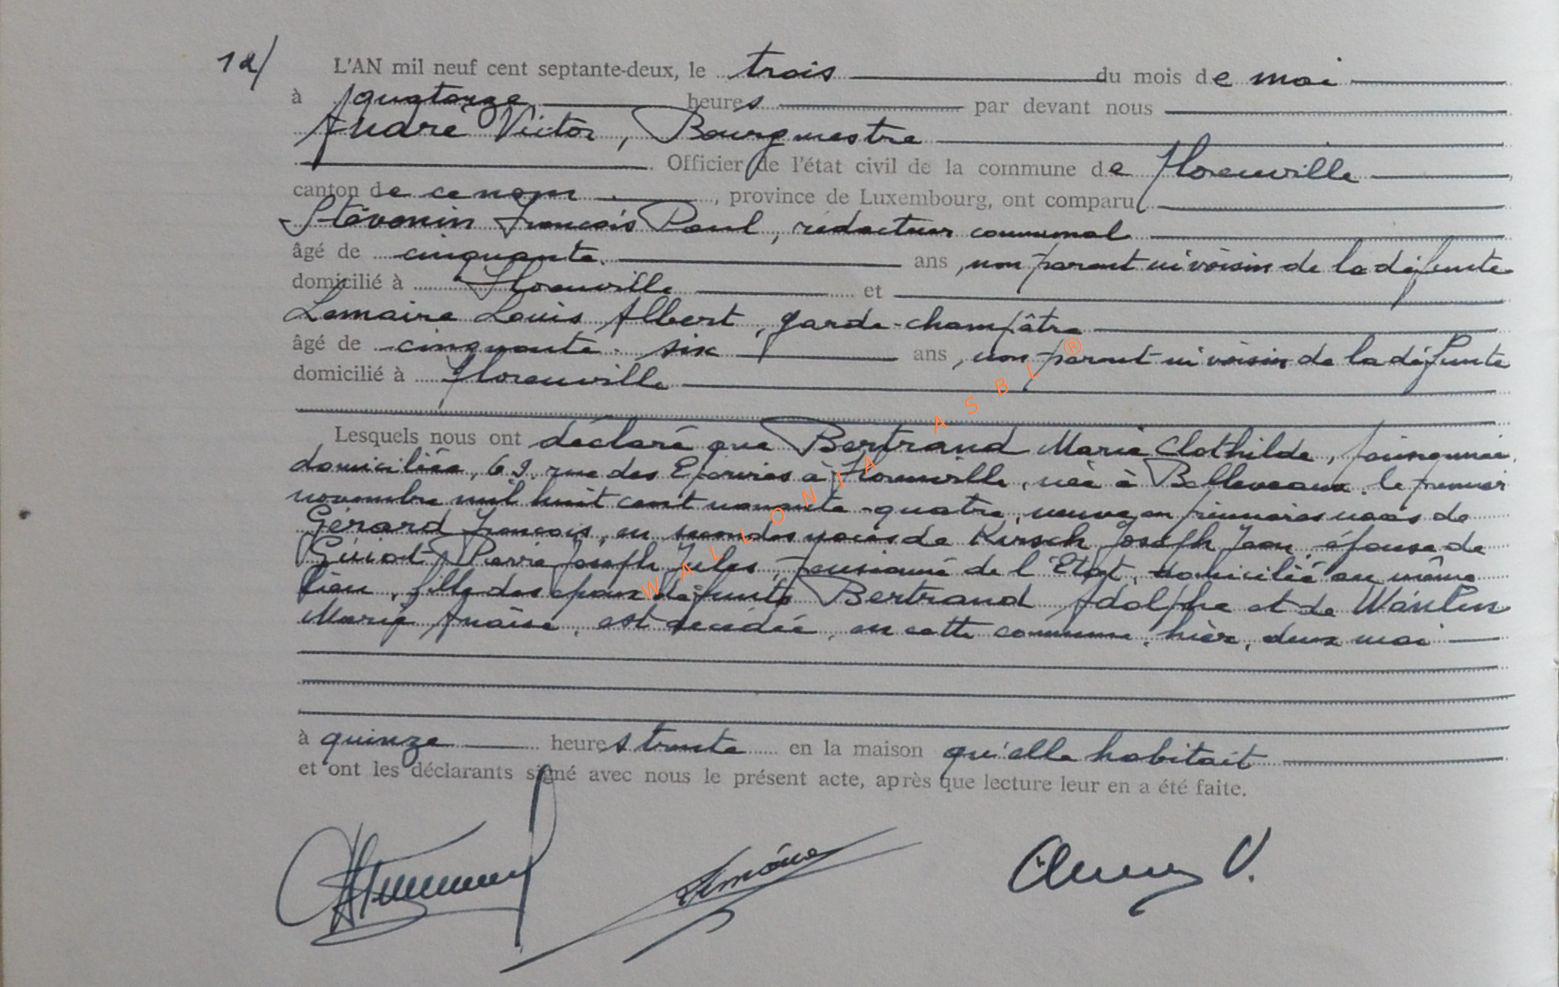 12/ L'AN mil neuf cent septante-deux, le trois du mois de mai
à quatorze heures par devant nous
André Victor, Bourgmestre
Officier de l'état civil de la commune de Florenville
canton de ce nom, province de Luxembourg, ont comparu
Stévenin François Paul, rédacteur communal
âgé de cinquante ans, non parent ni voisin de la défunte
domicilié à Florenville et
Lemaire Louis Albert, garde-champêtre
âgé de cinquante-six ans, non parent ni voisin de la défunte
domicilié à Florenville
Lesquels nous ont déclaré que Bertrand Marie Clothilde,
domiciliée, 69, rue des Epouses à Florenville, née à Bellevaux, le premier
novembre mil huit cent nonante-quatre, veuve en premières noces de
Gérard François, en secondes noces de Kirsch Joseph Jean, épouse de
Pierre Joseph Jules, pensionné de l'Etat, domicilié au même
lieu, fille des époux défunts Bertrand Adolphe et de Wanlin
Marie Anaïse, est décédée, en cette commune, hier, deux mai
à quinze heures trente en la maison qu'elle habitait
et ont les déclarants signé avec nous le présent acte, après que lecture leur en a été faite.
WALLONIA ASBL ®